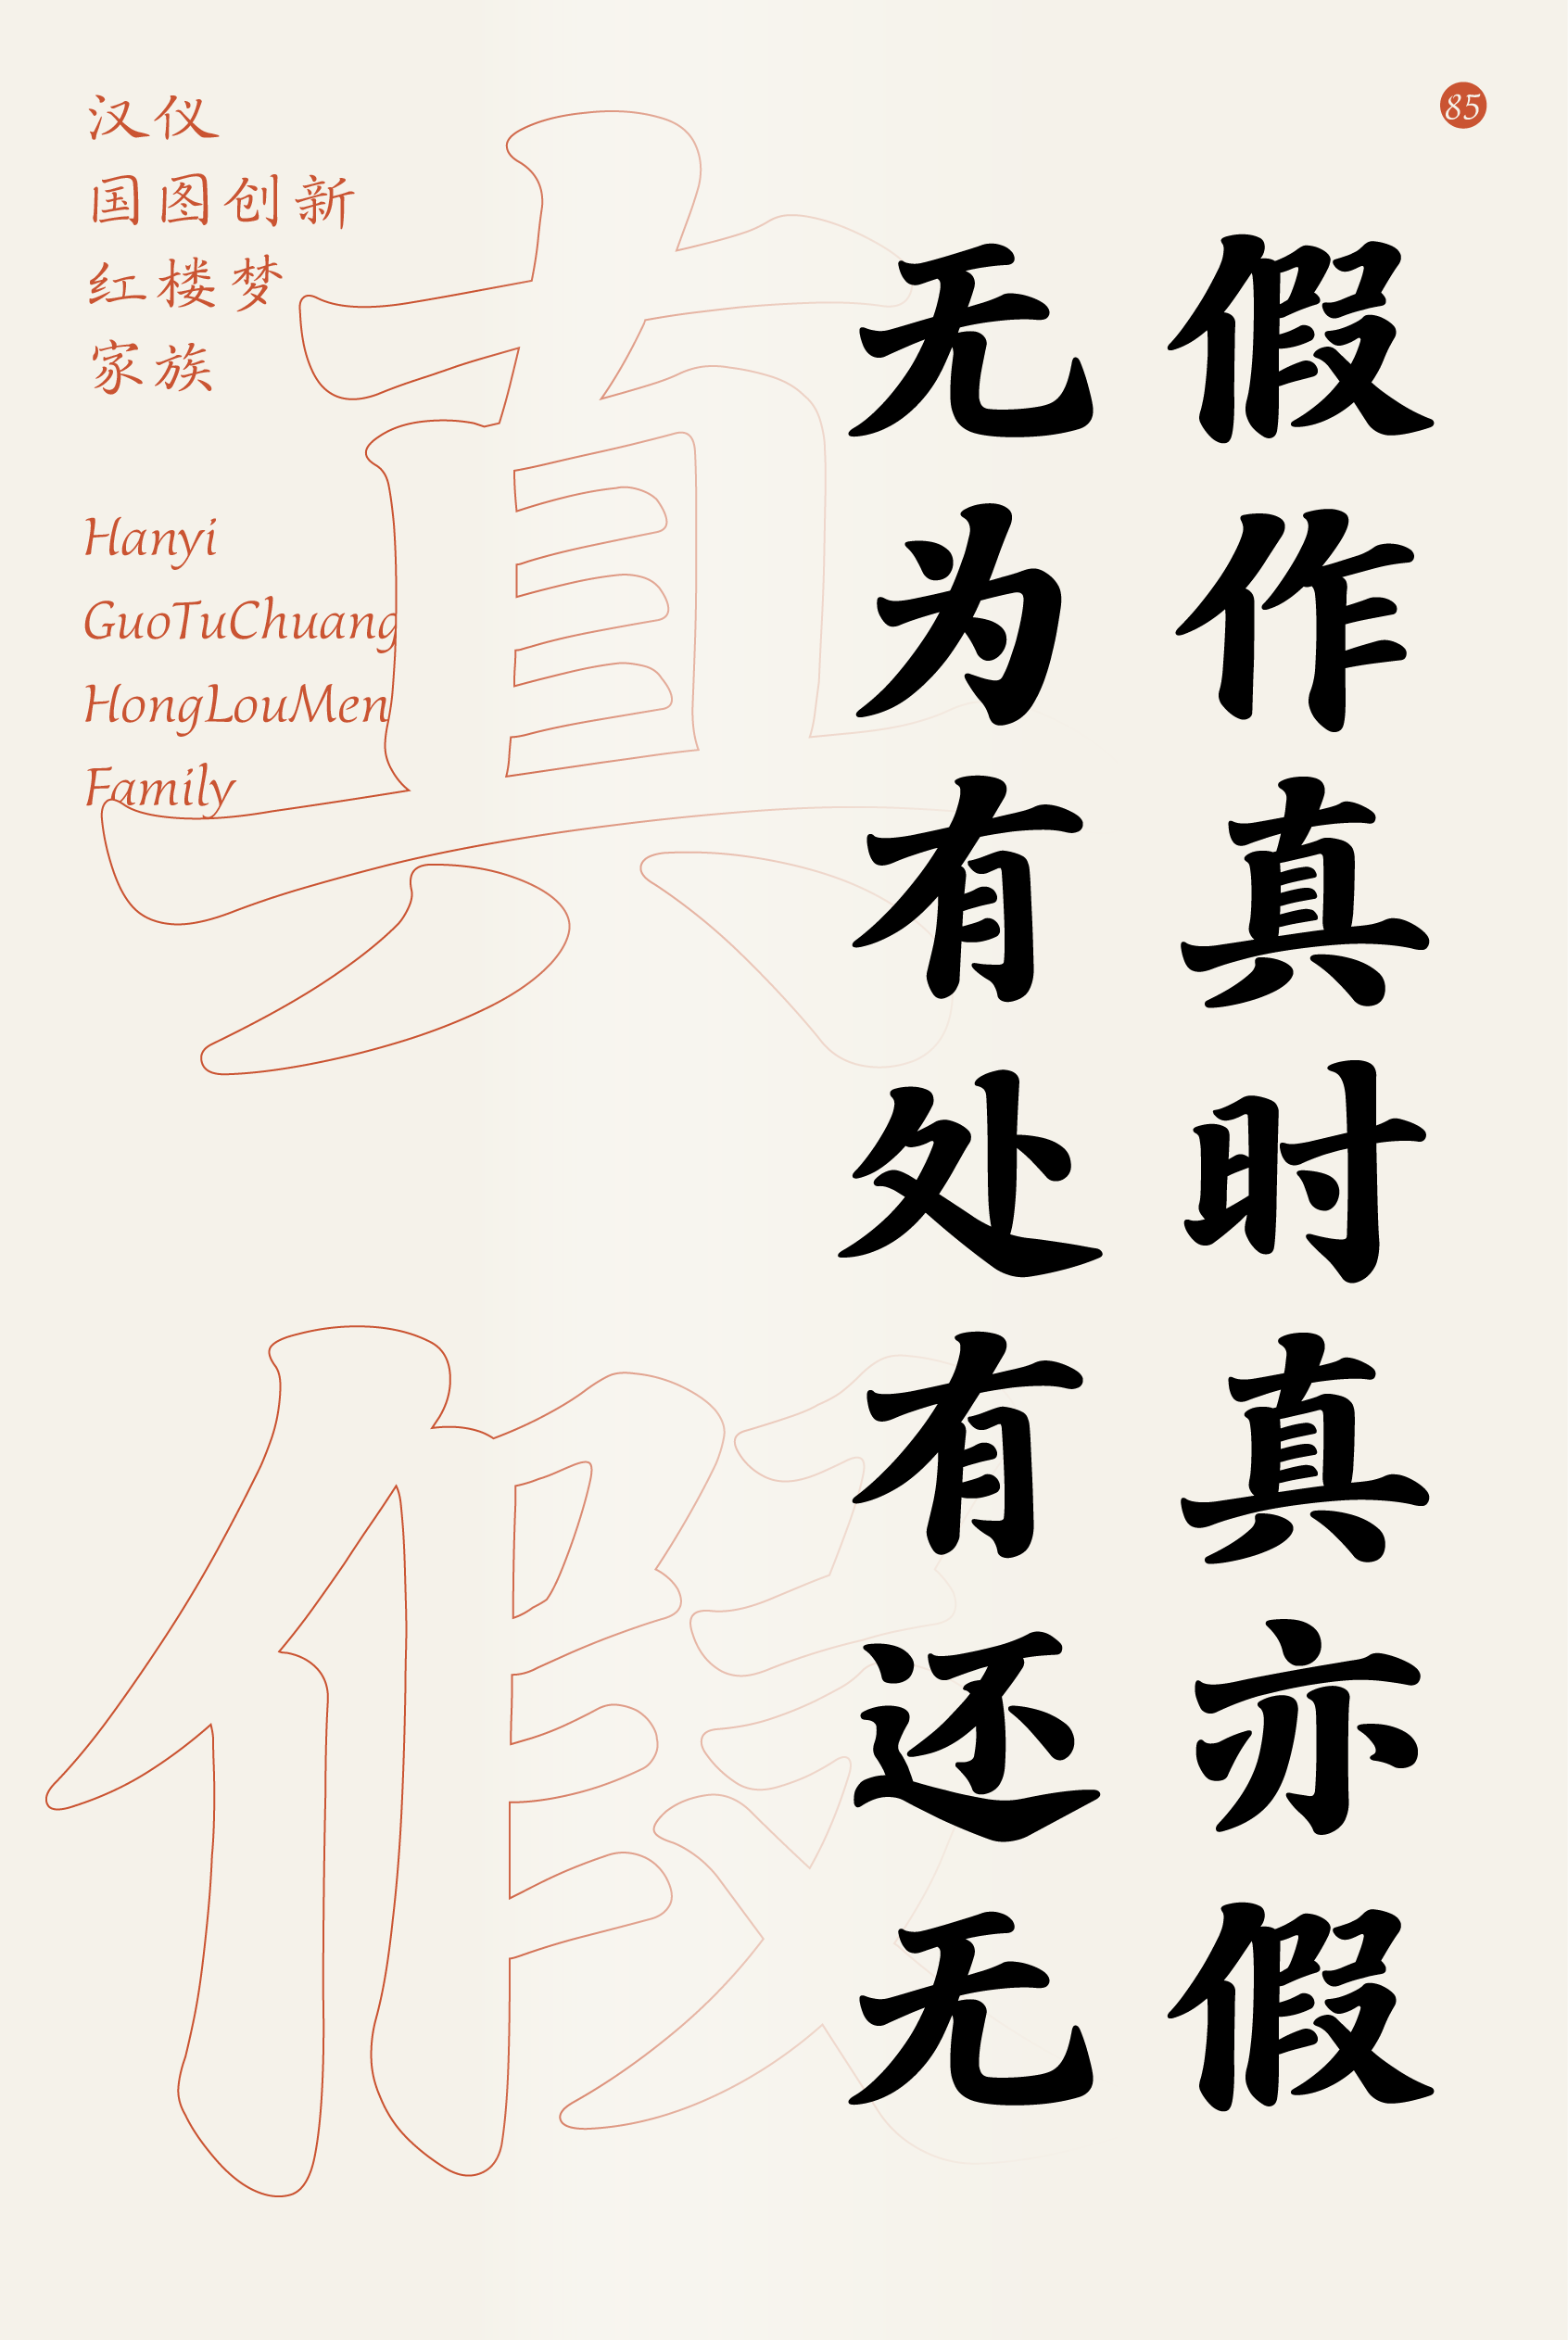 汉仪
国图创新
红楼梦
家族
Hanyi
GuoTuChuang
HongLouMen
Family
85
假作真时真亦假
无为有处有还无
真
假